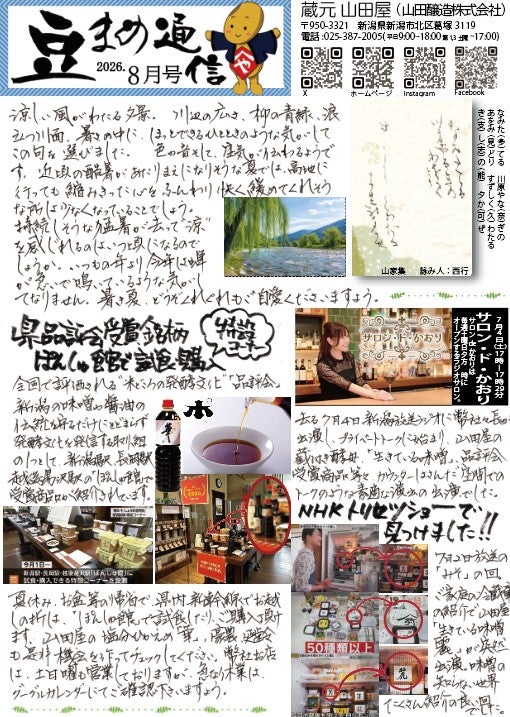 豆まめ通信
2026.8月号
蔵元 山田屋（山田醸造株式会社）
〒950-3321　新潟県新潟市北区葛塚 3119
電話:025-387-2005(平日9:00~18:00 第1/3土曜~17:00)
X
ホームページ
Instagram
Facebook
涼しい風がわたる夕景。川辺の広さ、柳の青緑、浪
立つ川面、暑さの中に、ほっとできるひとときのような気がして
この句を選びました。
です。近頃の酷暑があたりまえになりそうな夏では、高地に
行っても縮みきった心をふんわり快く緩めてくれそう
な所は少なくなっていることでしょう。
持続しそうな猛暑が去って涼
を感じれるのはいつ頃になるので
しょうか。いつもの年より今年は蝉
が急いで鳴いているような気がし
てなりません。暑き夏、どうぞくれぐれもご自愛くださいますよう。
なみた(多)てる　川原やな(奈)ぎの
あをみ(見)どり　すずしく(久)わたる
き(支)し(志)の(能)　夕か(可)ぜ
山家集　詠み人：西行
県品評会受賞銘柄
ぽんしゅ館で試食・購入
特設コーナー
全国で評価される“木どうりの発酵文化”「品評会」
新潟の味噌や醤油の
伝統を守るだけにとどまらず
発酵文化を発信する取り組
の1つとして、新潟駅、長岡駅
越後湯沢駅の「ぽんしゅ館」で
受賞商品が紹介されています。
今月1日～
新潟駅・長岡駅・越後湯沢駅「ぽんしゅ館」に
試食・購入できる特設コーナーを設置
夏休み、お盆等の帰省で県内新幹線駅でお越
しの折りは、「ぽんしゅ館」で試食したり、ご購入頂け
ます。山田屋の塩分ひかえめ「華」、
も是非機会を作ってチェックしてください。弊社お店
は、土日曜も営業しておりますが、急なり休業は、
グーグルカレンダーにてご確認下さいますよう。
サロン・ド・かおり
7月4日(土)17時～17時29分
サロン・ド・かおり
サロン・ド・かおりは
毎週土曜日夕方　時に
オープンするラジオサロン。
去る7月4日、新潟放送ラジオに弊社社長が
出演し、プライベートトークにはじまり、山田屋の
蔵付き酵母、「生きている味噌」、品評会
受賞商品等を、カウンターはさんだ空間での
トークのような素適な演出の出演でした。
NHKトリセツショーで
見っけました!!
50種類以上
7月2日放送の
「みそ」の回、
ご家庭の冷蔵庫
の紹介で山田屋
「生きている味噌
麗」が突然
出演。味噌の
知らない世界
たくさん紹介の良い回でした。